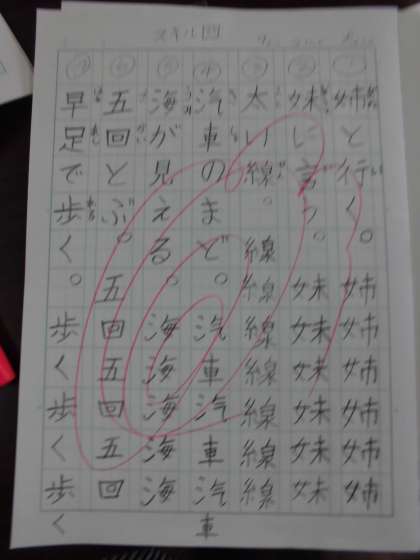 スキル
① 姉と行く。姉姉姉姉姉姉
② 妹に言う。妹妹妹妹妹妹
③ 太い線。線線線線線線線
④ 汽車のまど。汽車汽車汽車
⑤ 海が見える。海海海海海
⑥ 五回とぶ。五回五回五回
⑦ 早足で歩く。歩く歩く歩く